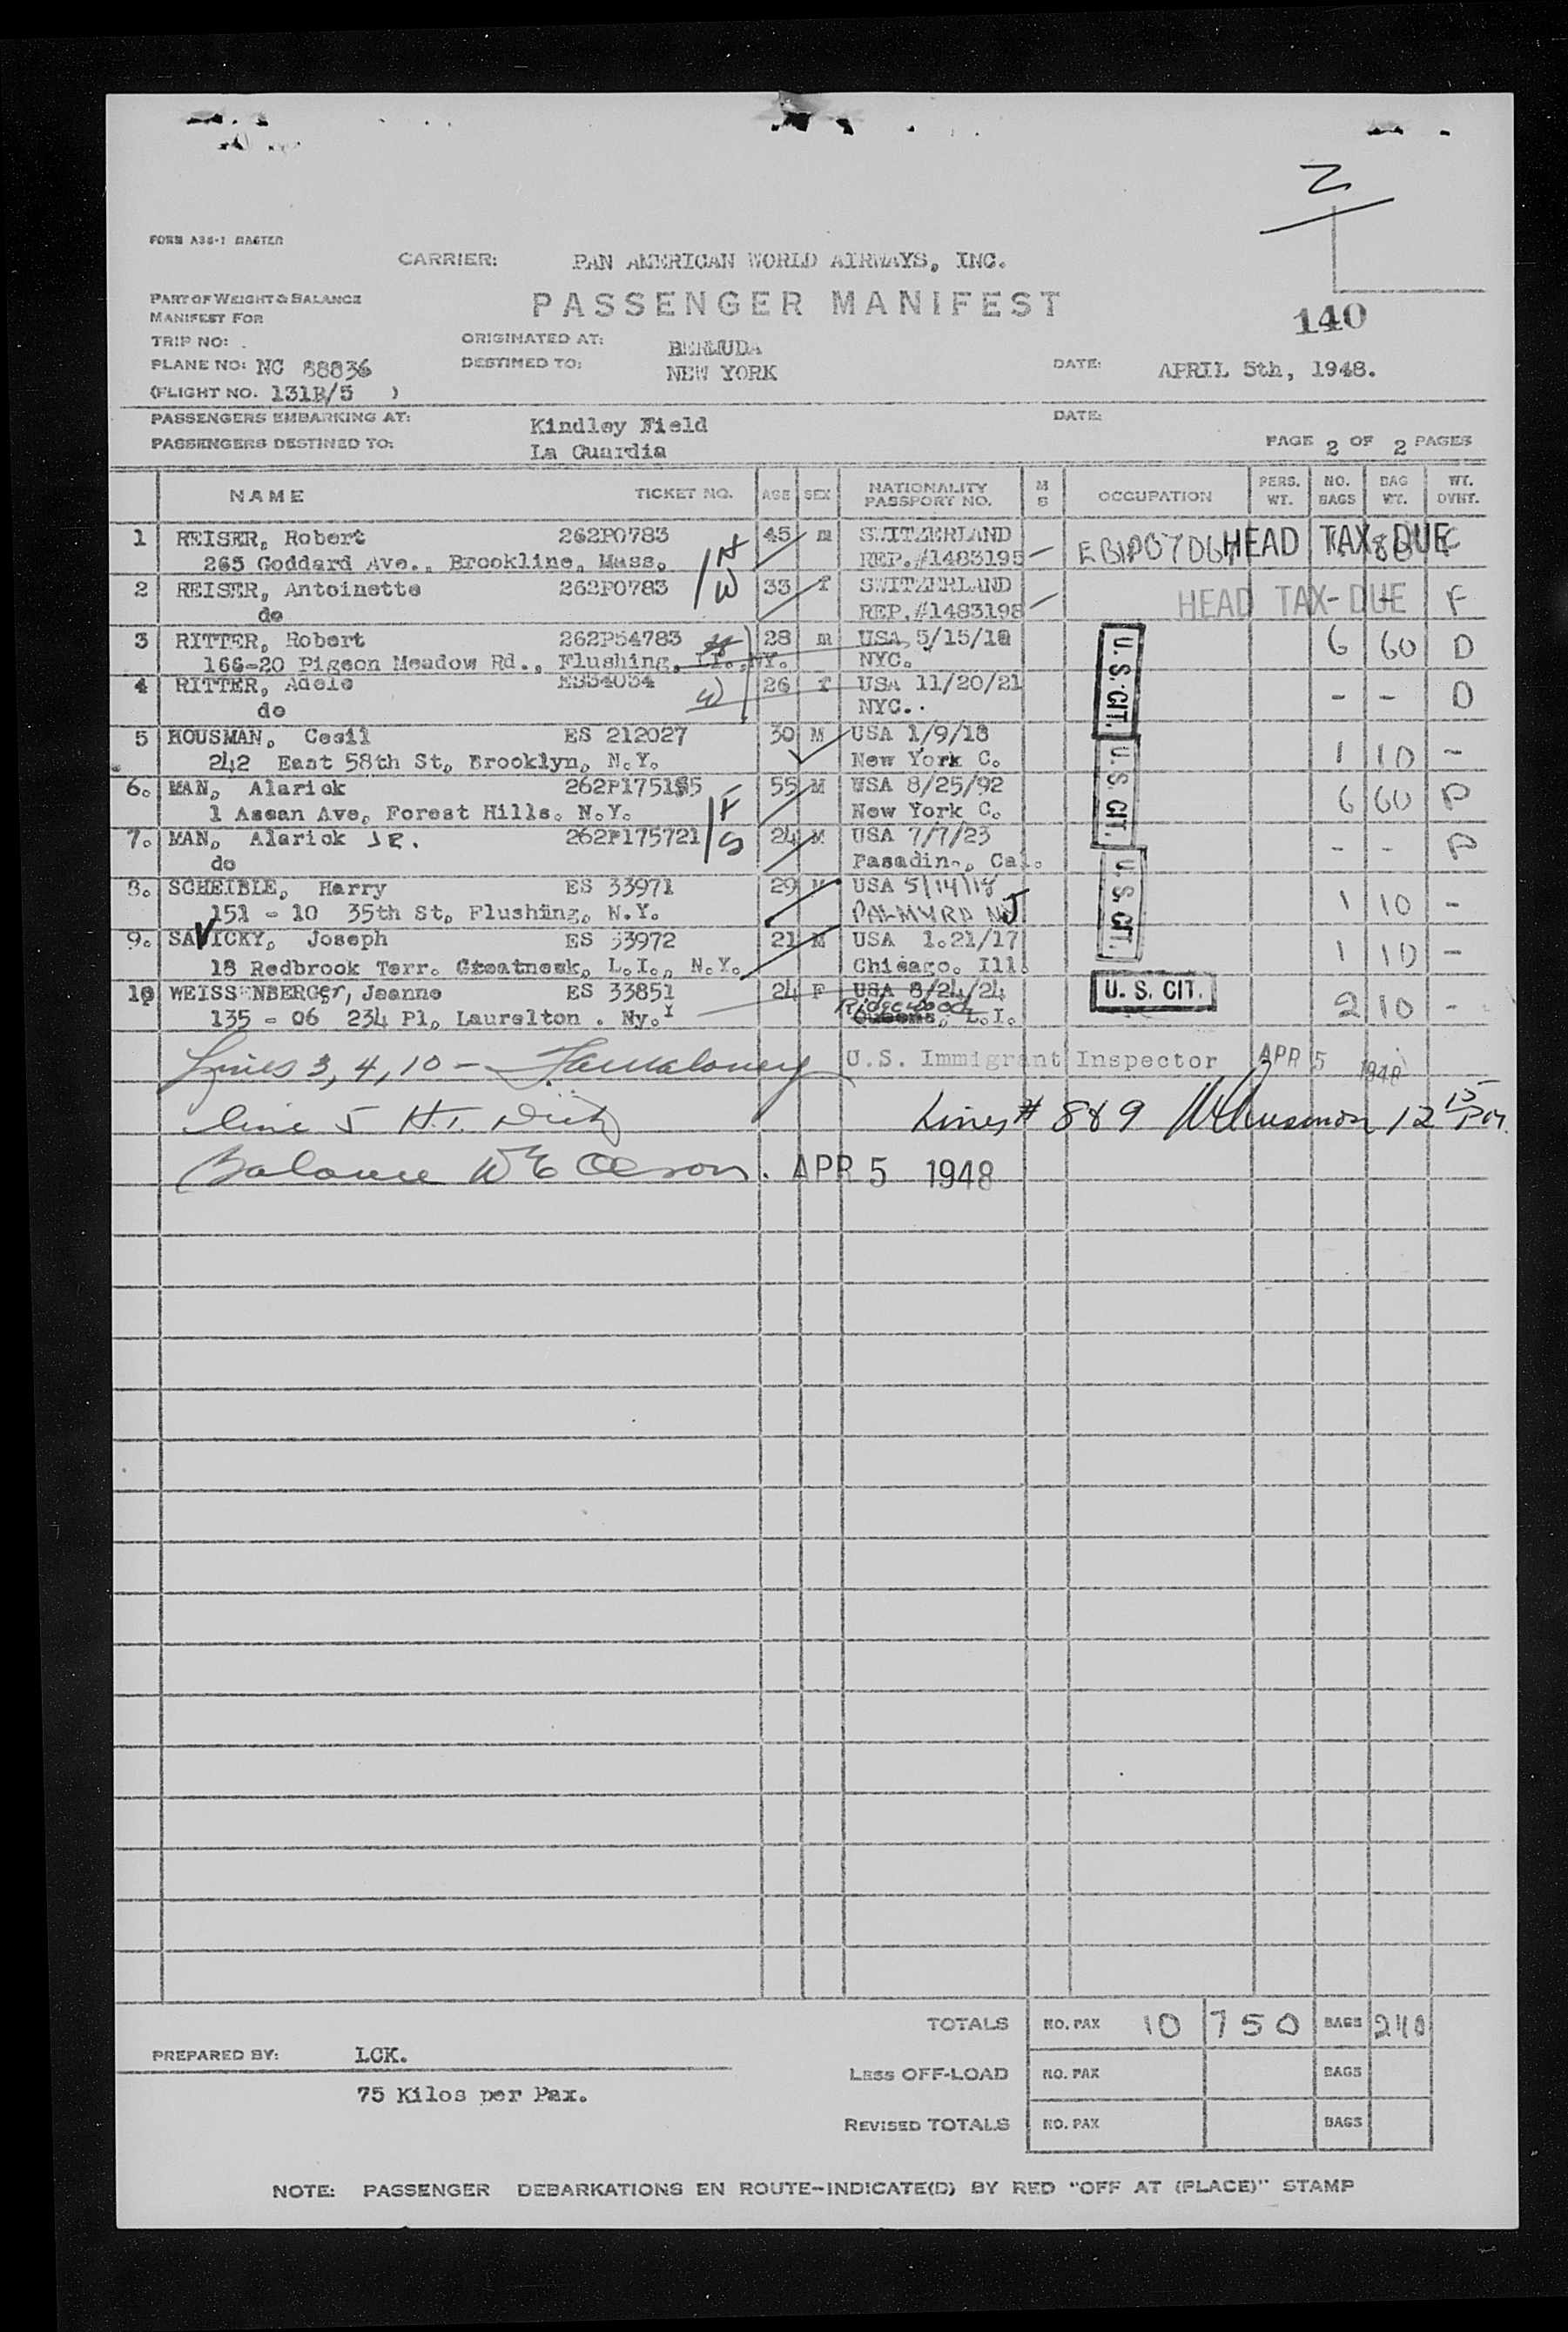 2
FORM A36-1 MASTER
CARRIER: PAN AMERICAN WORLD AIRWAYS, INC.
PART OF WEIGHT & BALANCE
MANIFEST FOR
PASSENGER MANIFEST
140
TRIP NO:
ORIGINATED AT: BERMUDA
PLANE NO: NC 88836
DESTINED TO: NEW YORK
DATE: APRIL 5th, 1948.
(FLIGHT NO. 131B/5 )
PASSENGERS EMBARKING AT: Kindley Field
DATE:
PASSENGERS DESTINED TO: La Guardia
PAGE 2 OF 2 PAGES
NAME TICKET NO. AGE SEX NATIONALITY PASSPORT NO. M S OCCUPATION PERS. WT. NO. BAGS BAG WT. WT. OVHT.
1 REISER, Robert 262P0783 45 m SWITZERLAND HEAD TAX DUE
265 Goddard Ave., Brookline, Mass. H REP.#1483195
2 REISER, Antoinette 262P0783 W 33 f SWITZERLAND HEAD TAX DUE F
do REP.#1483198
3 RITTER, Robert 262P54783 28 m USA 5/15/19 6 60 D
166-20 Pigeon Meadow Rd., Flushing, LI.,NY. NYC.
4 RITTER, Adele ES34034 W 26 f USA 11/20/21 - - D
do NYC..
U. S. CIT.
5 HOUSMAN, Cecil ES 212027 30 M USA 1/9/18 1 10 -
242 East 58th St, Brooklyn, N.Y. New York C.
6. MAN, Alarick 262P175155 55 M USA 8/25/92 6 60 P
1 Ascan Ave, Forest Hills. N.Y. F New York C.
U. S. CIT.
7. MAN, Alarick JR. 262P175721 S 24 M USA 7/7/23 - - P
do Pasadin., Cal.
8. SCHEIBLE, Harry ES 33971 29 M USA 5/14/18 1 10 -
151 - 10 35th St, Flushing, N.Y. PALMYRA NJ
U. S. CIT.
9. SAVICKY, Joseph ES 33972 21 M USA 1.21/17 1 10 -
18 Redbrook Terr. Greatneck, L.I., N.Y. Chicago. Ill.
10 WEISSENBERGer, Jeanne ES 33851 24 F USA 8/24/24 U. S. CIT. 2 10 -
135 - 06 234 Pl, Laurelton . Ny. Ridgewood L.I.
Lines 3, 4, 10 - U.S. Immigrant Inspector APR 5 1948
line 5 H. Lines # 8&9 12 15 PM
Balance APR 5 1948
TOTALS NO. PAX 10 750 BAGS 240
PREPARED BY: LCK.
LESS OFF-LOAD NO. PAX BAGS
75 Kilos per Pax.
REVISED TOTALS NO. PAX BAGS
NOTE: PASSENGER DEBARKATIONS EN ROUTE-INDICATE(D) BY RED "OFF AT (PLACE)" STAMP